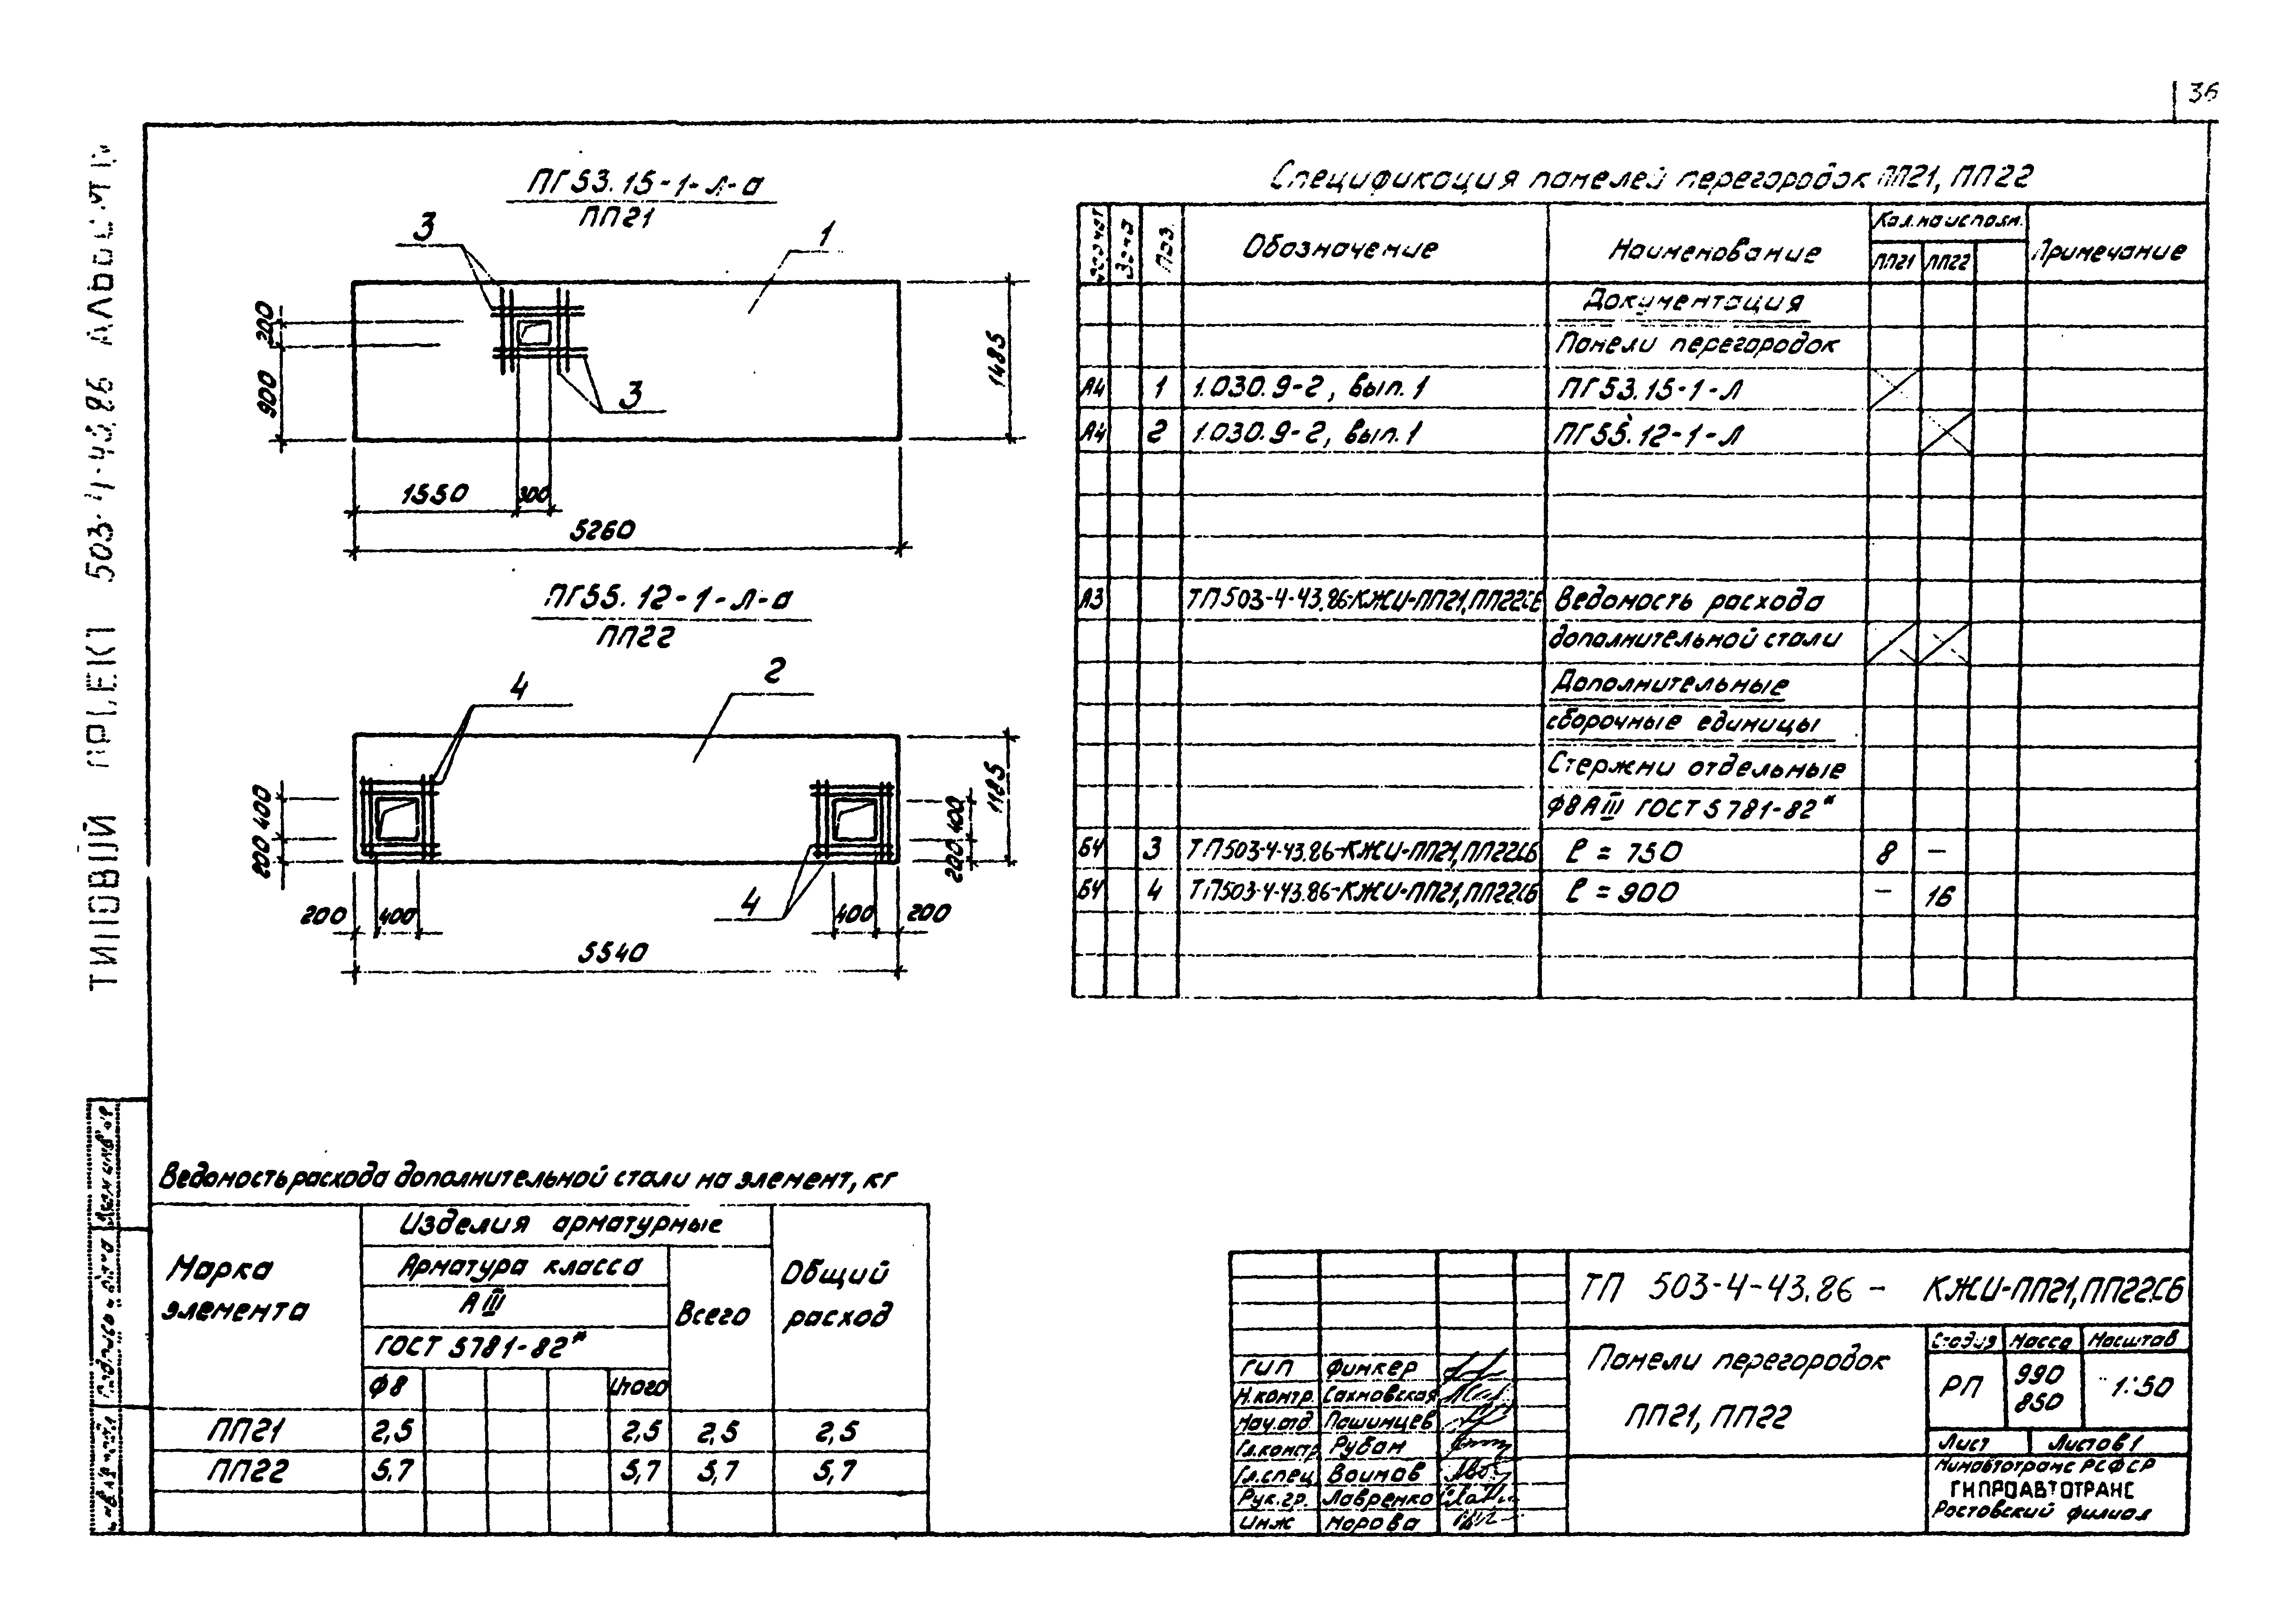 36
ТИПОВОЙ ПРОЕКТ 503-4-43.86 АЛЬБОМ
ПГ53.15-1-Л-а
ПП21
3
1
200
900
1485
3
1550
300
5260
ПГ55.12-1-Л-а
ПП22
4
2
400
200
1185
400
200
4
200
400
400
200
5540
Спецификация панелей перегородок ПП21, ПП22
Формат Зона Поз. Обозначение Наименование Кол. на исполн. Примечание
ПП21 ПП22
Документация
Панели перегородок
А4 1 1.030.9-2, вып.1 ПГ53.15-1-Л
А4 2 1.030.9-2, вып.1 ПГ55.12-1-Л
А3 ТП503-4-43.86-КЖИ-ПП21,ПП22СБ Ведомость расхода
дополнительной стали
Дополнительные
сборочные единицы
Стержни отдельные
Ф8АIII ГОСТ 5781-82*
БЧ 3 ТП503-4-43.86-КЖИ-ПП21,ПП22СБ ℓ = 750 8 –
БЧ 4 ТП503-4-43.86-КЖИ-ПП21,ПП22СБ ℓ = 900 – 16
Ведомость расхода дополнительной стали на элемент, кг
Марка элемента
Изделия арматурные
Арматура класса
АIII
ГОСТ 5781-82*
Ф8 Итого
Всего
Общий расход
ПП21 2,5 2,5 2,5 2,5
ПП22 5,7 5,7 5,7 5,7
ТП 503-4-43.86 - КЖИ-ПП21,ПП22СБ
Панели перегородок
ПП21, ПП22
Стадия Масса Масштаб
РП 990 1:50
850
Лист Листов 1
Минавтотранс РСФСР
ГИПРОАВТОТРАНС
Ростовский филиал
ГИП Финкер
Н.контр. Сахновская
Нач.отд Пашинцев
Гл.констр Рубан
Гл.спец. Воинов
Рук.гр. Лавренко
Инж Морова